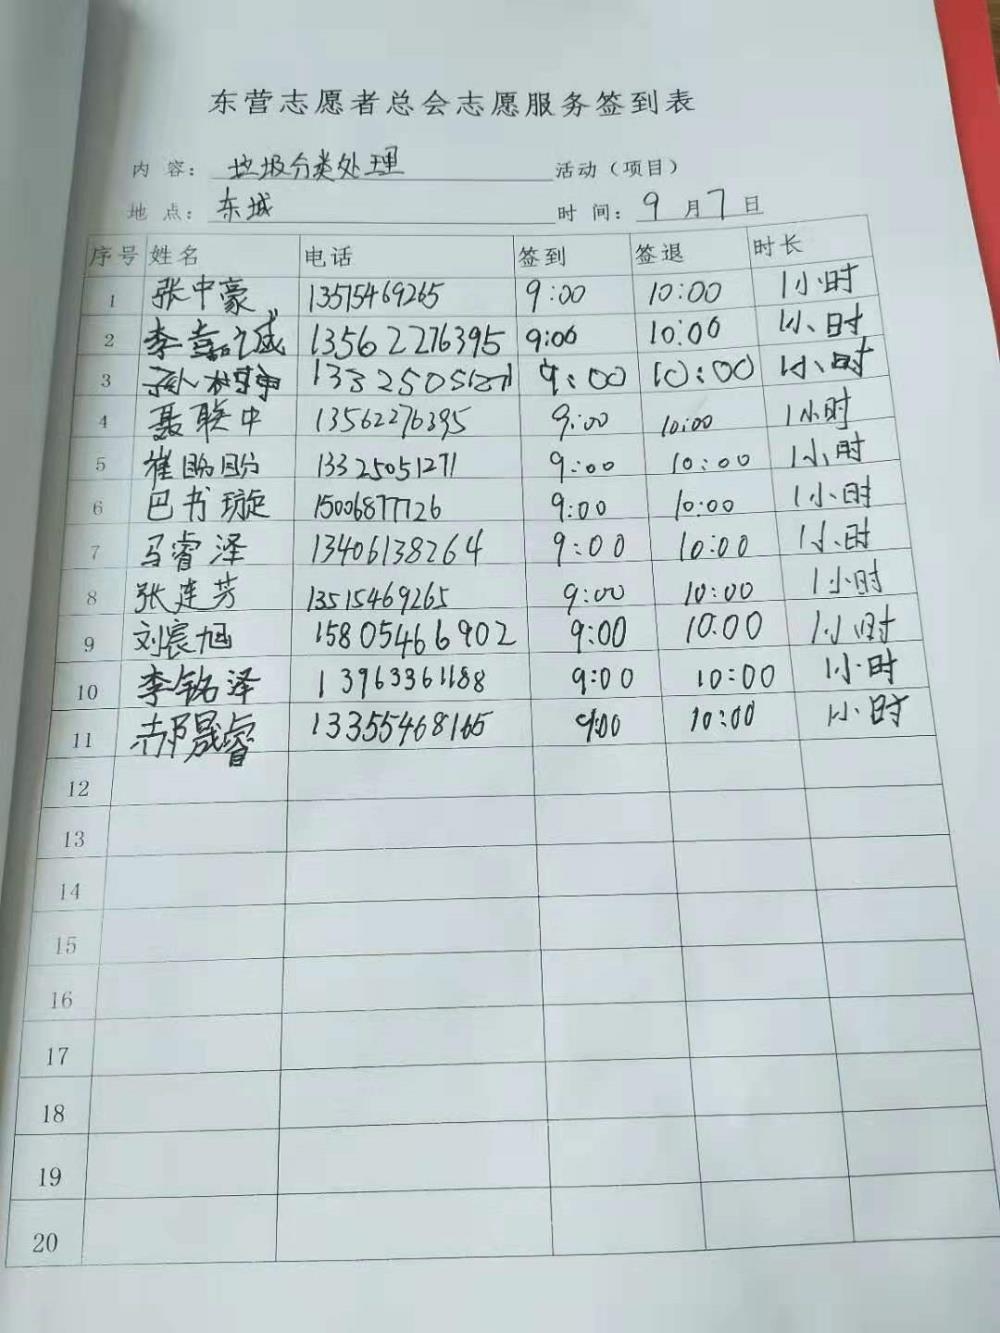 东营志愿者总会志愿服务签到表
内 容： 垃圾分类处理 活动（项目）
地 点： 东城 时 间： 9 月 7 日
序号 姓名 电话 签到 签退 时长
1 张中豪 13515469265 9:00 10:00 1小时
2 李嘉诚 13562276395 9:00 10:00 1小时
3 孙 9:00 10:00 1小时
4 聂联中 13562276395 9:00 10:00 1小时
5 崔盼盼 13325051271 9:00 10:00 1小时
6 巴书璇 15006877126 9:00 10:00 1小时
7 马睿泽 13406138264 9:00 10:00 1小时
8 张连芳 13515469265 9:00 10:00 1小时
9 刘宸旭 15805466902 9:00 10:00 1小时
10 李铭泽 13963361188 9:00 10:00 1小时
11 郝晟睿 13355468165 9:00 10:00 1小时
12
13
14
15
16
17
18
19
20